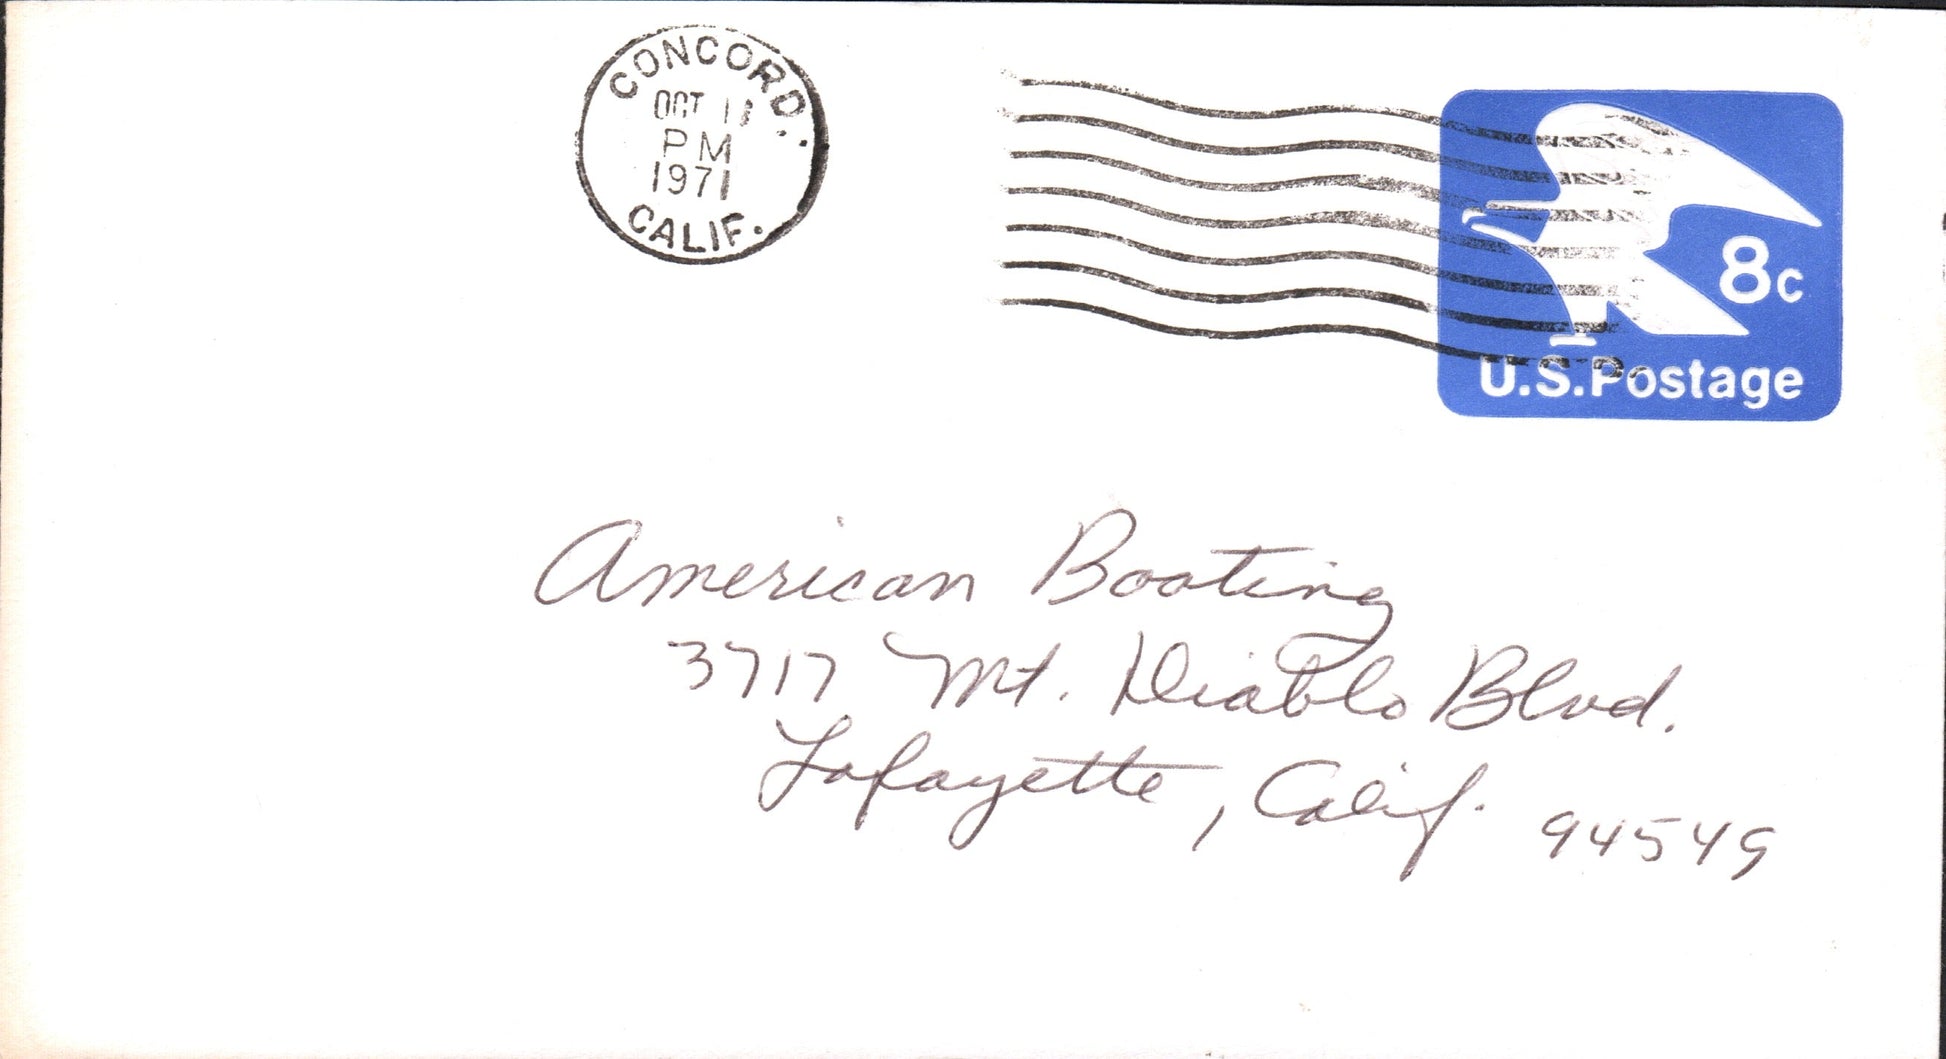 CONCORD,
OCT
PM
1971
CALIF.
8c
U.S. Postage
American Boating
3717 Mt. Diablo Blvd.
Lafayette, Calif. 94549